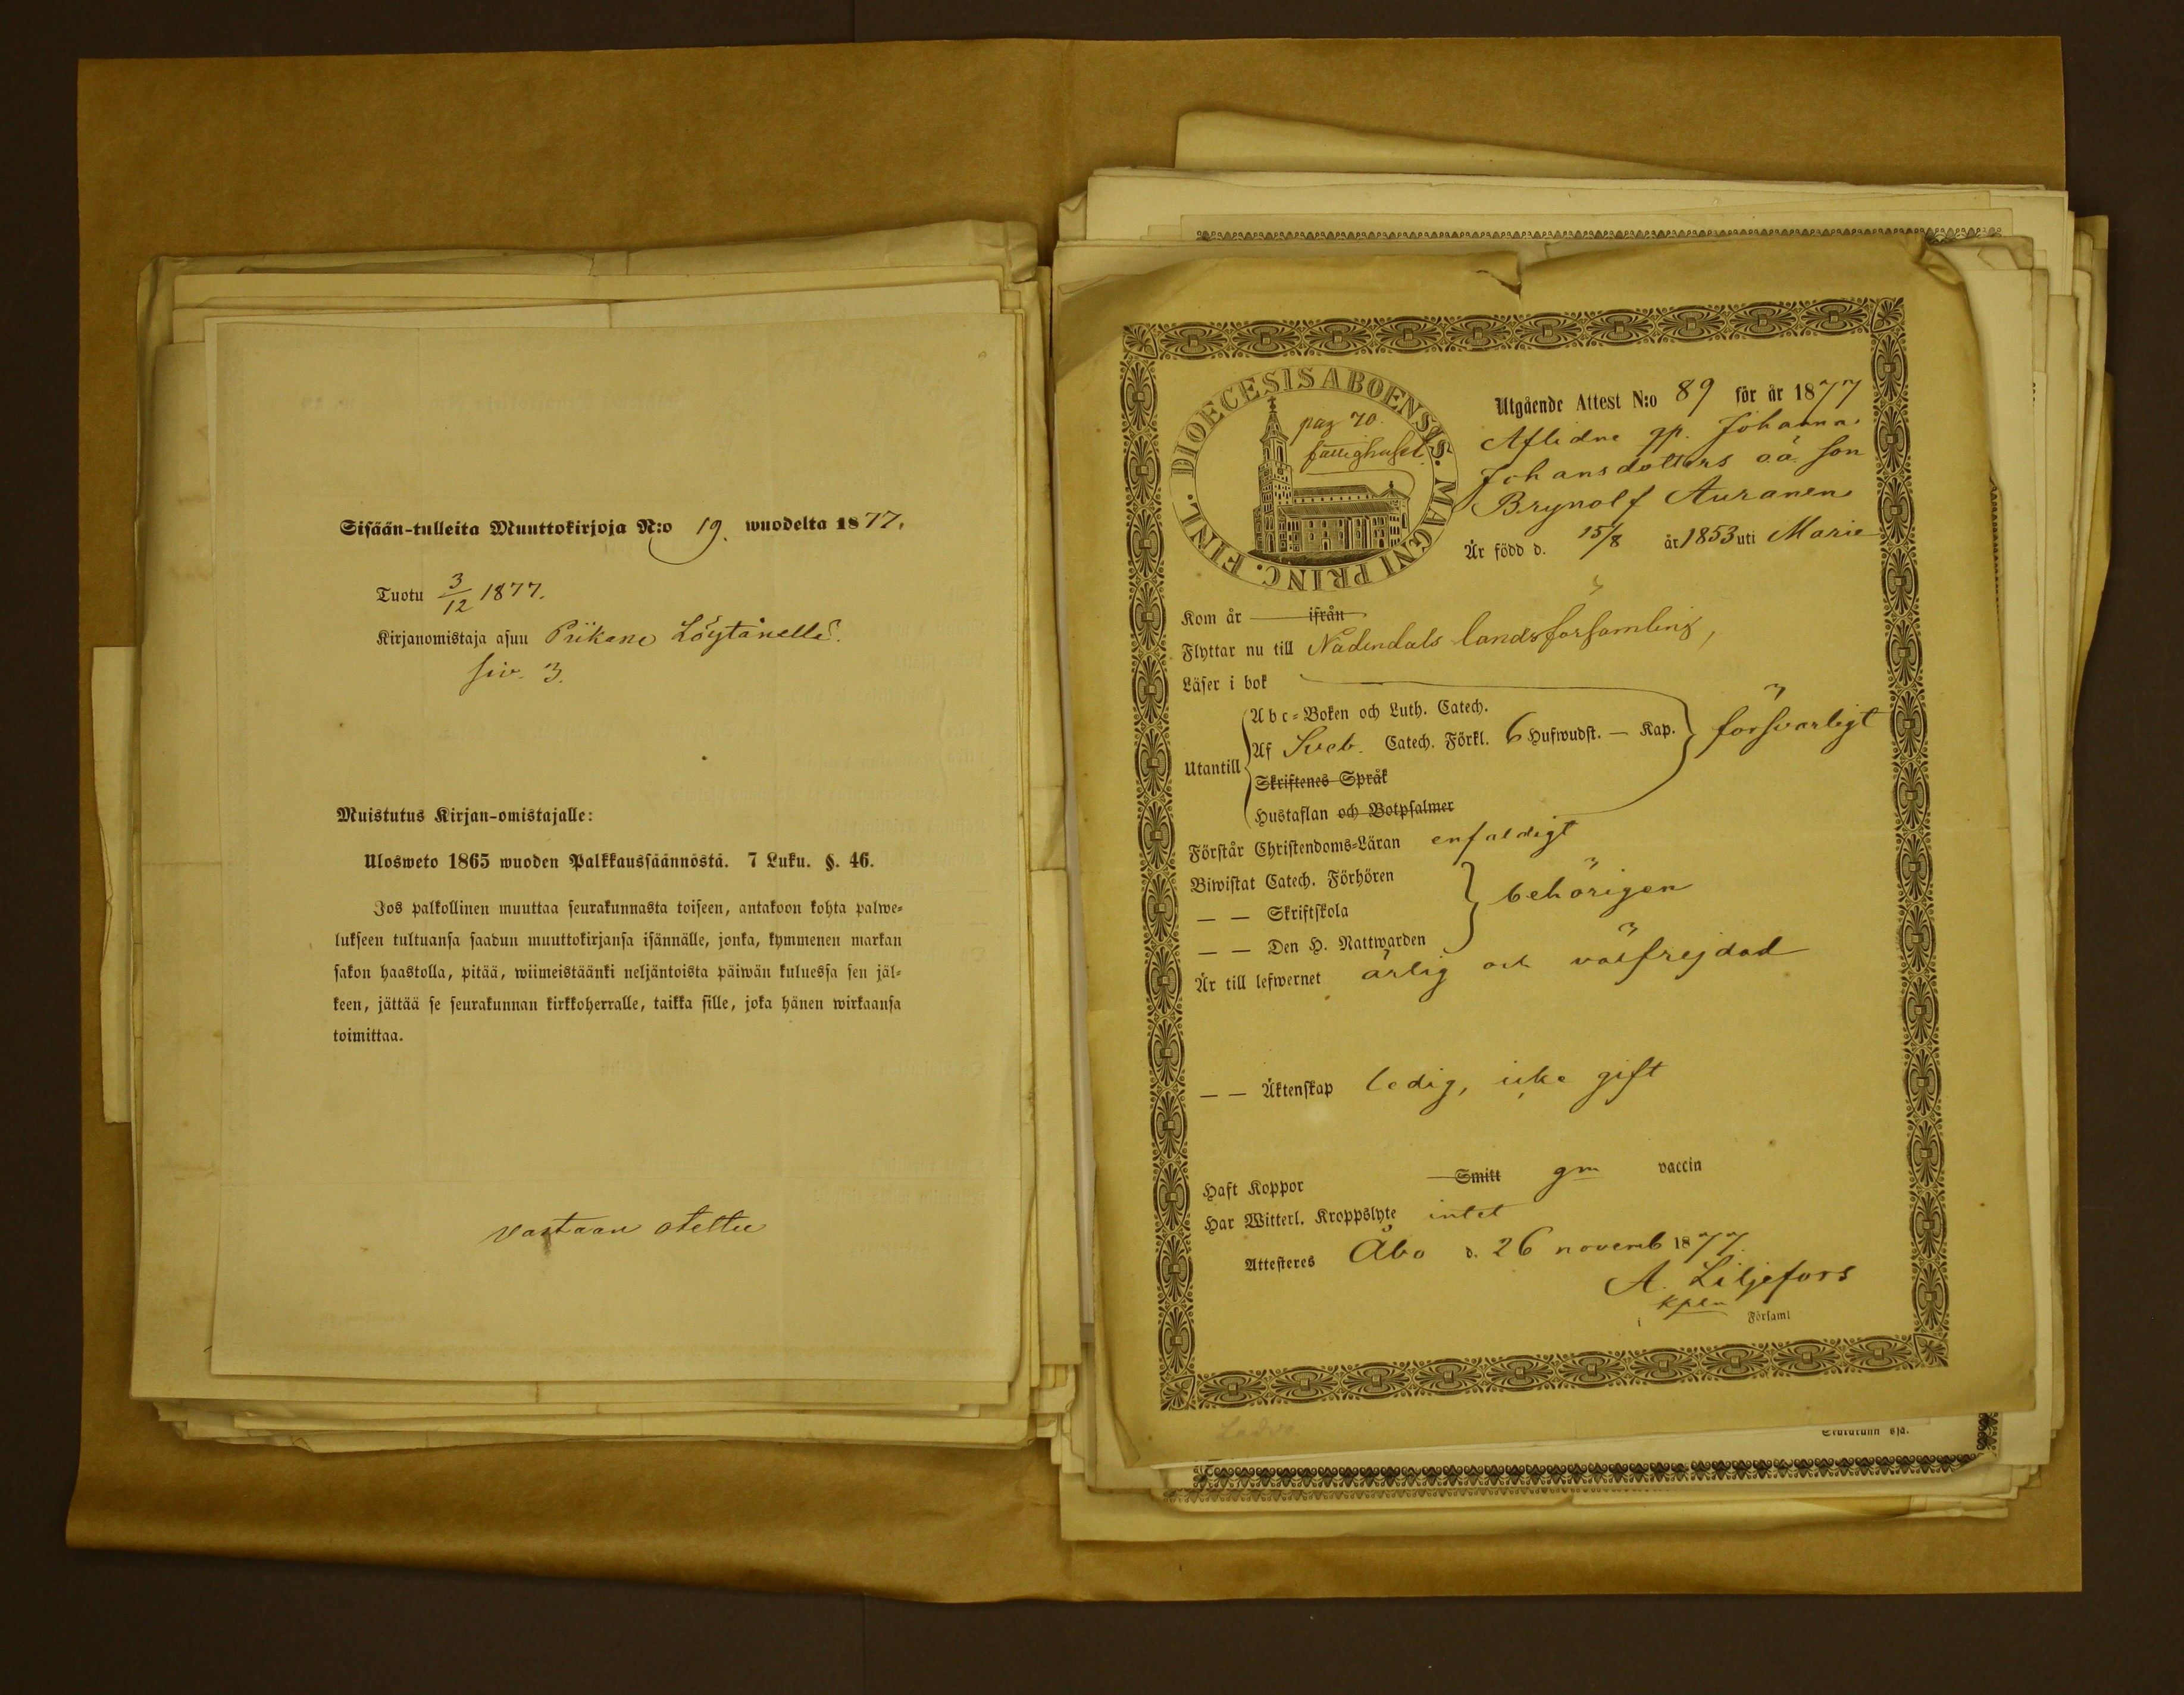 Sisään-tulleita Muuttokirjoja N:o 19. wuodelta 1877.
Tuotu 3/12 1877.
Kirjanomistaja asuu Piikana Löytänellä.
siv. 3.
Muistutus Kirjan-omistajalle:
Ulosweto 1865 wuoden Palkkaussäännöstä. 7 Luku. §. 46.
Jos palkollinen muuttaa seurakunnasta toiseen, antakoon kohta palwe=
lukseen tultuansa saadun muuttokirjansa isännälle, jonka, kymmenen markan
sakon haastolla, pitää, wiimeistäänki neljäntoista päiwän kuluessa sen jäl=
keen, jättää se seurakunnan kirkkoherralle, taikka sille, joka hänen wirkaansa
toimittaa.
vastaan otettu
DIOECESIS ABOENSIS. MAGNI PRINC. FINL.
pag 70.
fattighuset
Utgående Attest N:o 89 för år 1877
Aflidna gp. Johanna
Johansdotters oä son
Brynolf Auranen
Är född d. 15/8 år 1853 uti Marie
Kom år ifrån
Flyttar nu till Nådendals landsförsamling,
Läser i bok
Utantill
Abc=Boken och Luth. Catech.
Af Sveb. Catech. Förkl. 6 Hufwudst. — Kap.
försvarligt
Skriftenes Språk
Hustaflan och Botpsalmer
Förstår Christendoms=Läran enfaldigt
Biwistat Catech. Förhören
— — Skriftskola
behörigen
— — Den H. Nattwarden
Är till lefwernet ärlig och välfrejdad
— — Äktenskap ledig, icke gift
Haft Koppor Smitt gm vaccin
Har Witterl. Kroppslyte intet
Attesteres Åbo d. 26 novemb 1877
A. Liljefors
kpln
i Församl